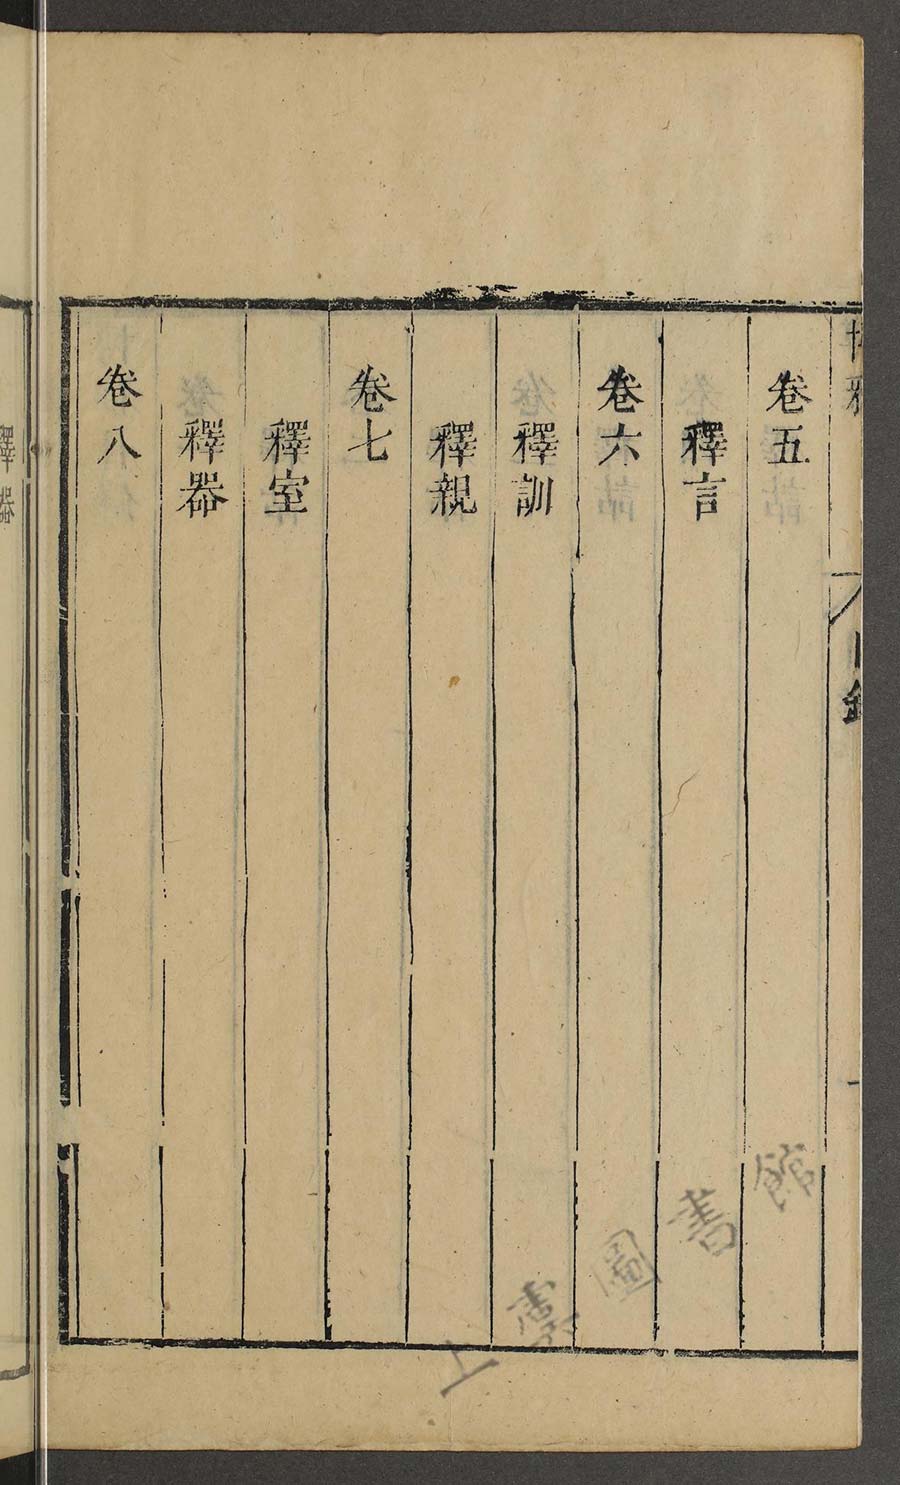 卷五
釋言
卷六
釋訓
釋親
卷七
釋室
釋器
卷八
上虞圖書館